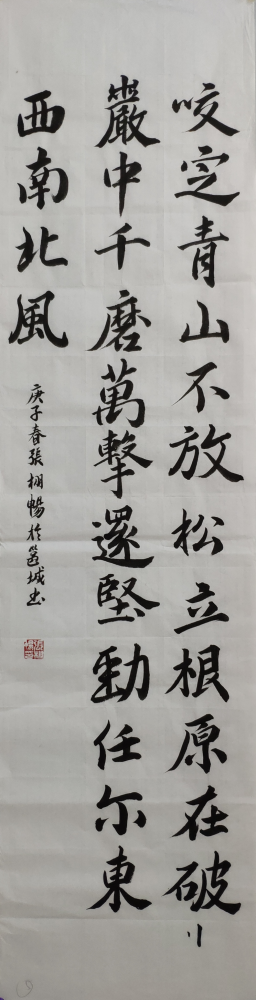 咬定青山不放松立根原在破〃
巖中千磨萬擊還堅勁任尔東
西南北風
庚子春張栩暢於邕城书